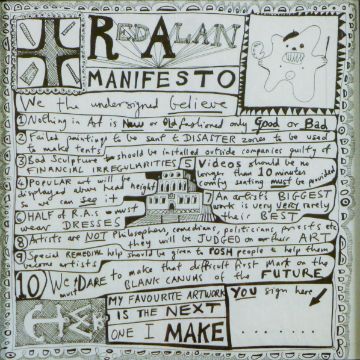 RED ALAN
MANIFESTO
We the undersigned believe
1 Nothing in Art is New or Old fashioned only Good or Bad
2 Failed paintings to be sent to DISASTER zones to be used
to make tents
3 Bad Sculpture should be installed outside companies guilty of
FINANCIAL IRREGULARITIES
4 Popular art will be
displayed above head height
so we can see it
5 Videos should be no
longer than 10 minutes
comfy seating must be provided
6 HALF of R.A.s must
wear DRESSES
7 AN artists BIGGEST
work is very very rarely
their BEST
8 Artists are NOT Philosophers, comedians, politicians, priests etc
they will be JUDGED on their ART
9 Special REMEDIAL help should be given to POSH people to help them
become artists
10 We must DARE to make that difficult first Mark on the
BLANK CANVAS of the FUTURE
MY FAVOURITE ARTWORK
IS THE NEXT
ONE I MAKE
YOU sign here